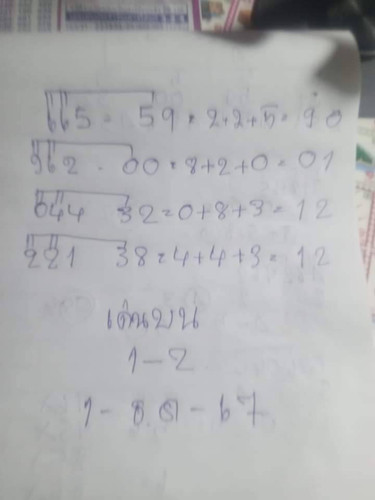 665 - 59 = 2+2+5 = 90
962 - 00 = 8+2+0 = 01
044 32 = 0+8+3 = 12
221 38 = 4+4+3 = 12
เด่นบน
1-2